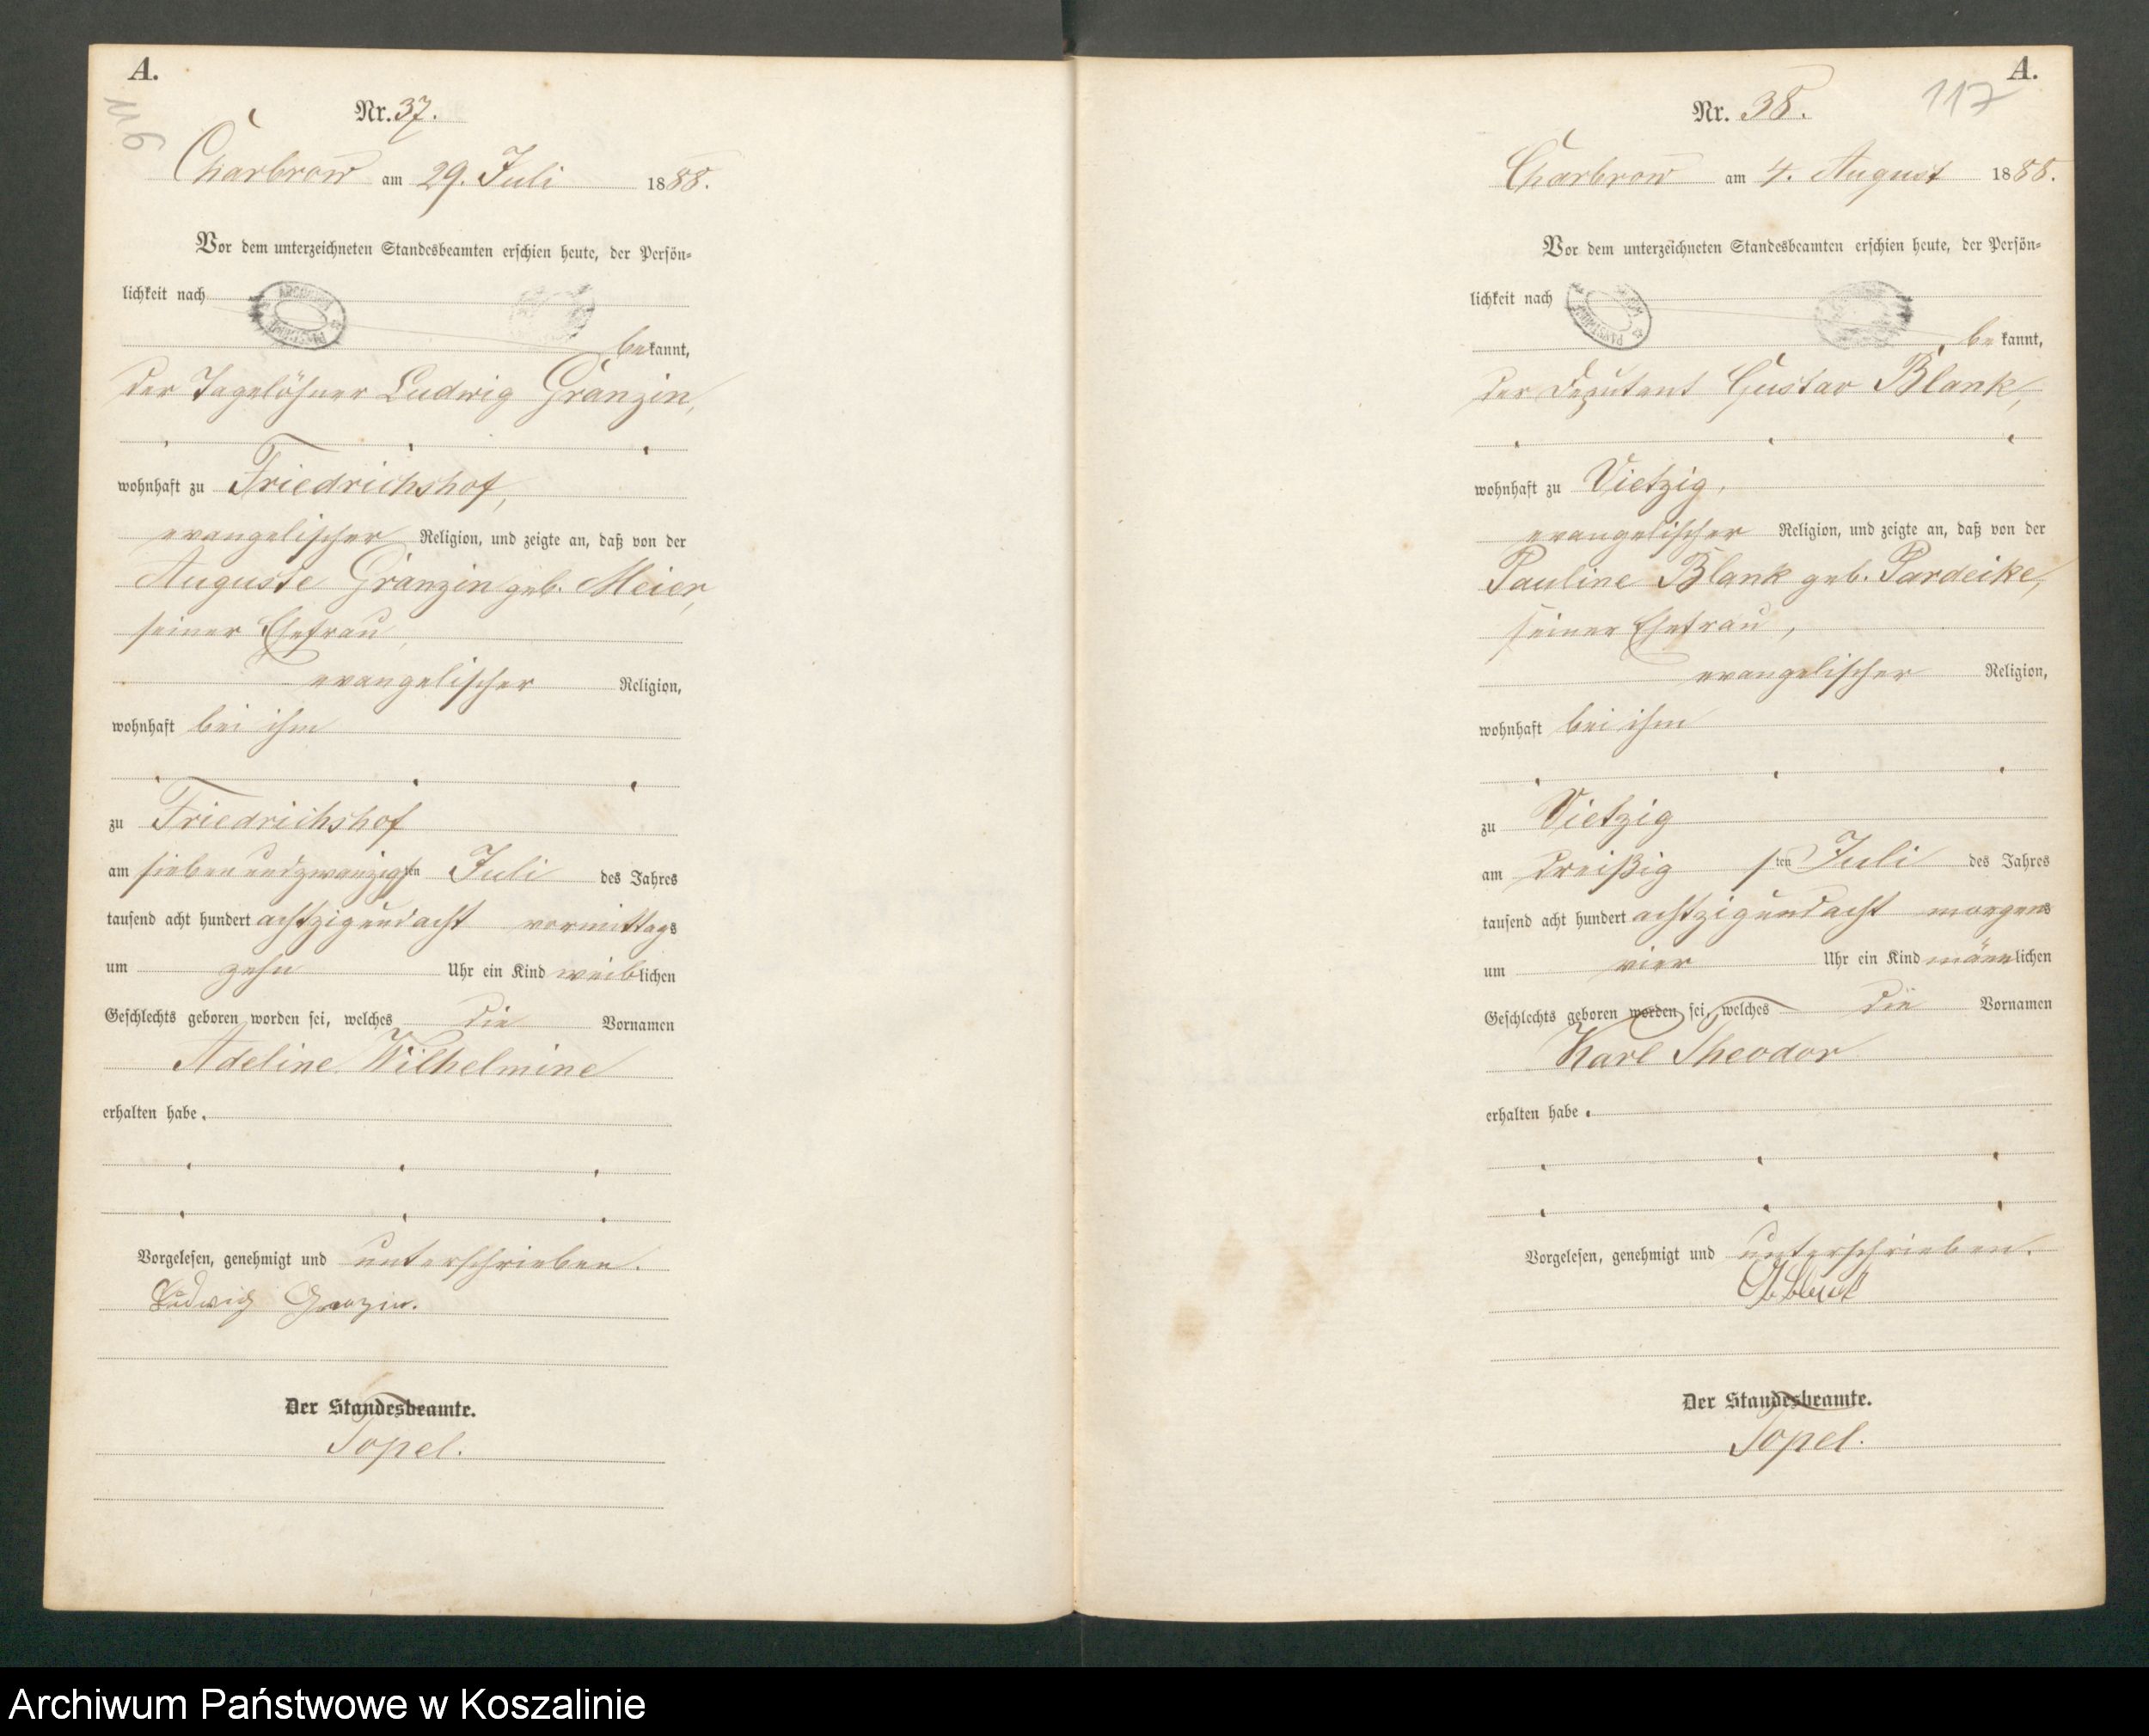 A.
116
Nr. 37.
Charbrow am 29. Juli 1888.
Vor dem unterzeichneten Standesbeamten erschien heute, der Persön-
lichkeit nach
bekannt,
der Tagelöhner Ludwig Granzin,
wohnhaft zu Friedrichshof,
evangelischer Religion, und zeigte an, daß von der
Auguste Granzin geb. Meier,
seiner Ehefrau,
evangelischer Religion,
wohnhaft bei ihm
zu Friedrichshof
am siebenundzwanzigsten Juli des Jahres
tausend acht hundert achtzigundacht vormittags
um zehn Uhr ein Kind weiblichen
Geschlechts geboren worden sei, welches die Vornamen
Adeline Wilhelmine
erhalten habe.
Vorgelesen, genehmigt und unterschrieben.
Ludwig Granzin.
Der Standesbeamte.
Topel.
A.
117
Nr. 38.
Charbrow am 4. August 1888.
Vor dem unterzeichneten Standesbeamten erschien heute, der Persön-
lichkeit nach
bekannt,
der Deputant Gustav Blank,
wohnhaft zu Vietzig,
evangelischer Religion, und zeigte an, daß von der
Pauline Blank geb. Pardeike,
seiner Ehefrau,
evangelischer Religion,
wohnhaft bei ihm
zu Vietzig
am dreißigsten Juli des Jahres
tausend acht hundert achtzigundacht morgens
um vier Uhr ein Kind männlichen
Geschlechts geboren worden sei, welches die Vornamen
Karl Theodor
erhalten habe.
Vorgelesen, genehmigt und unterschrieben.
Der Standesbeamte.
Topel.
Archiwum Państwowe w Koszalinie